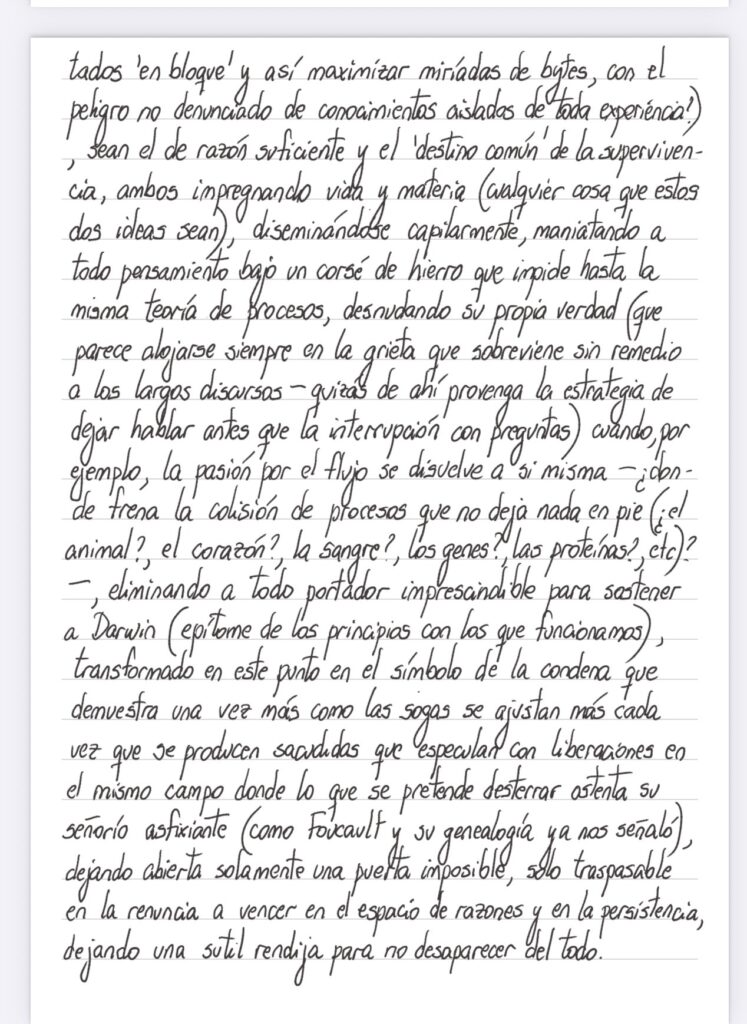 tados 'en bloque' y así maximizar miríadas de bytes, con el
peligro no denunciado de conocimientos aislados de toda experiencia!)
, sean el de razón suficiente y el 'destino común' de la superviven-
cia, ambos impregnando vida y materia (cualquier cosa que estos
dos ideas sean), diseminándose capilarmente, maniatando a
todo pensamiento bajo un corsé de hierro que impide hasta la
misma teoría de procesos, desnudando su propia verdad (que
parece alojarse siempre en la grieta que sobreviene sin remedio
a los largos discursos – quizás de ahí provenga la estrategia de
dejar hablar antes que la interrupción con preguntas) cuando, por
ejemplo, la pasión por el flujo se disuelve a si misma – ¿don-
de frena la colisión de procesos que no deja nada en pie (¿el
animal?, el corazón?, la sangre?, los genes?, las proteínas?, etc)?
–, eliminando a todo portador imprescindible para sostener
a Darwin (epítome de los principios con los que funcionamos),
transformado en este punto en el símbolo de la condena que
demuestra una vez más como las sogas se ajustan más cada
vez que se producen sacudidas que especulan con liberaciones en
el mismo campo donde lo que se pretende desterrar ostenta su
señorío asfixiante (como Foucault y su genealogía ya nos señaló),
dejando abierta solamente una puerta imposible, sólo traspasable
en la renuncia a vencer en el espacio de razones y en la persistencia,
dejando una sutil rendija para no desaparecer del todo.